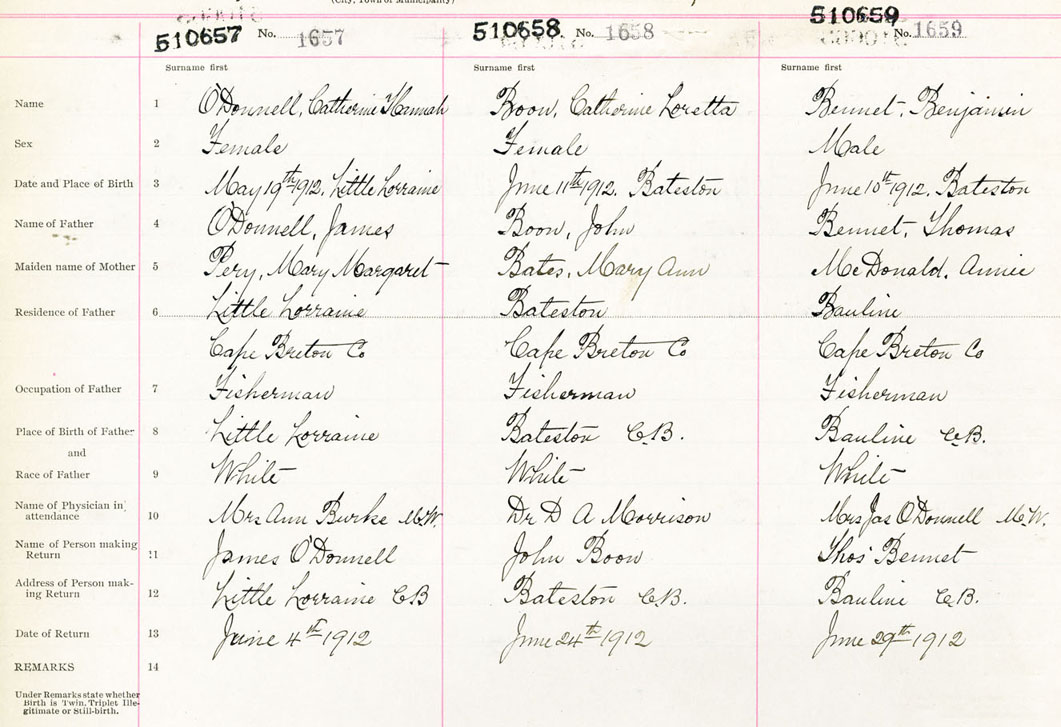 (City, Town or Municipality)
510657 No. 1657 510658 No. 1658 510659 No. 1659
Surname first Surname first Surname first
Name 1 O'Donnell, Catherine Hannah Boon, Catherine Loretta Bennet, Benjamin
Sex 2 Female Female Male
Date and Place of Birth 3 May 19th 1912, Little Lorraine June 11th 1912. Bateston June 10th 1912. Bateston
Name of Father 4 O'Donnell, James Boon, John Bennet, Thomas
Maiden name of Mother 5 Pery, Mary Margaret Bates, Mary Ann McDonald, Annie
Residence of Father 6 Little Lorraine Bateston Bauline
Cape Breton Co Cape Breton Co Cape Breton Co
Occupation of Father 7 Fisherman Fisherman Fisherman
Place of Birth of Father 8 Little Lorraine Bateston C.B. Bauline C.B.
and
Race of Father 9 White White White
Name of Physician in
attendance 10 Mrs Ann Burke M.W. Dr D A Morrison Mrs Jas O'Donnell M.W.
Name of Person making
Return 11 James O'Donnell John Boon Thos Bennet
Address of Person mak-
ing Return 12 Little Lorraine C.B Bateston C.B. Bauline C.B.
Date of Return 13 June 4th 1912 June 24th 1912 June 29th 1912
REMARKS 14
Under Remarks state whether
Birth is Twin, Triplet Ille-
gitimate or Still-birth.